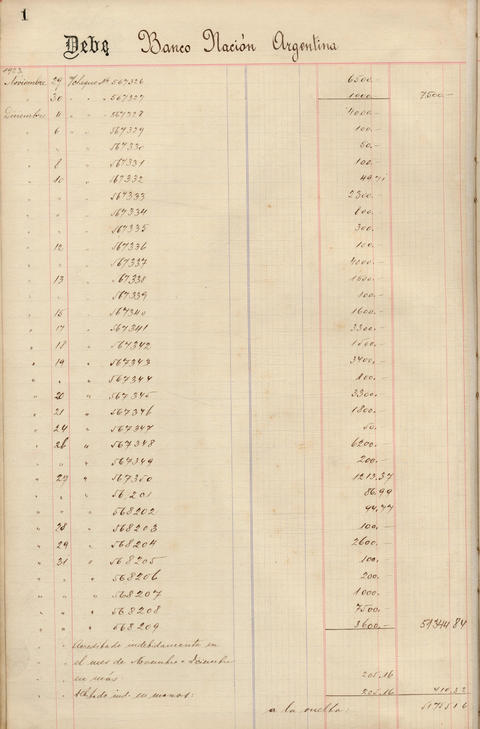 1
Debe Banco Nación Argentina
1923
Noviembre 29 Cheque Nº 567326 6500.-
" 30 " " 567327 1000.- 7500.-
Diciembre 4 " " 567328 4000.-
" 6 " 567329 100.-
" " " 567330 50.-
" 8 " 567331 100.-
" 10 " 567332 49,71
" " " 567333 2300.-
" " " 567334 800.-
" " " 567335 300.-
" 12 " 567336 100.-
" " " 567337 4000.-
" 13 " 567338 1500.-
" " " 567339 100.-
" 15 " 567340 1600.-
" 17 " 567341 3300.-
" 18 " 567342 1500.-
" 19 " 567343 3400.-
" " " 567344 800.-
" 20 " 567345 3300.-
" 21 " 567346 1800.-
" 24 " 567347 50.-
" 26 " 567348 6200.-
" " " 567349 200.-
" 27 " 567350 1213,37
" " " 568201 86,99
" " " 568202 94,77
" 28 " 568203 100.-
" 29 " 568204 2600.-
" 31 " 568205 100.-
" " " 568206 200.-
" " " 568207 1000.-
" " " 568208 7500.-
" " " 568209 3600.- 51344 84
" " Acreditado indebidamente en
" " el mes de Noviembre o Diciembre
" " en más 205,16
" " en menos: 205,16 410,32
a la vuelta: